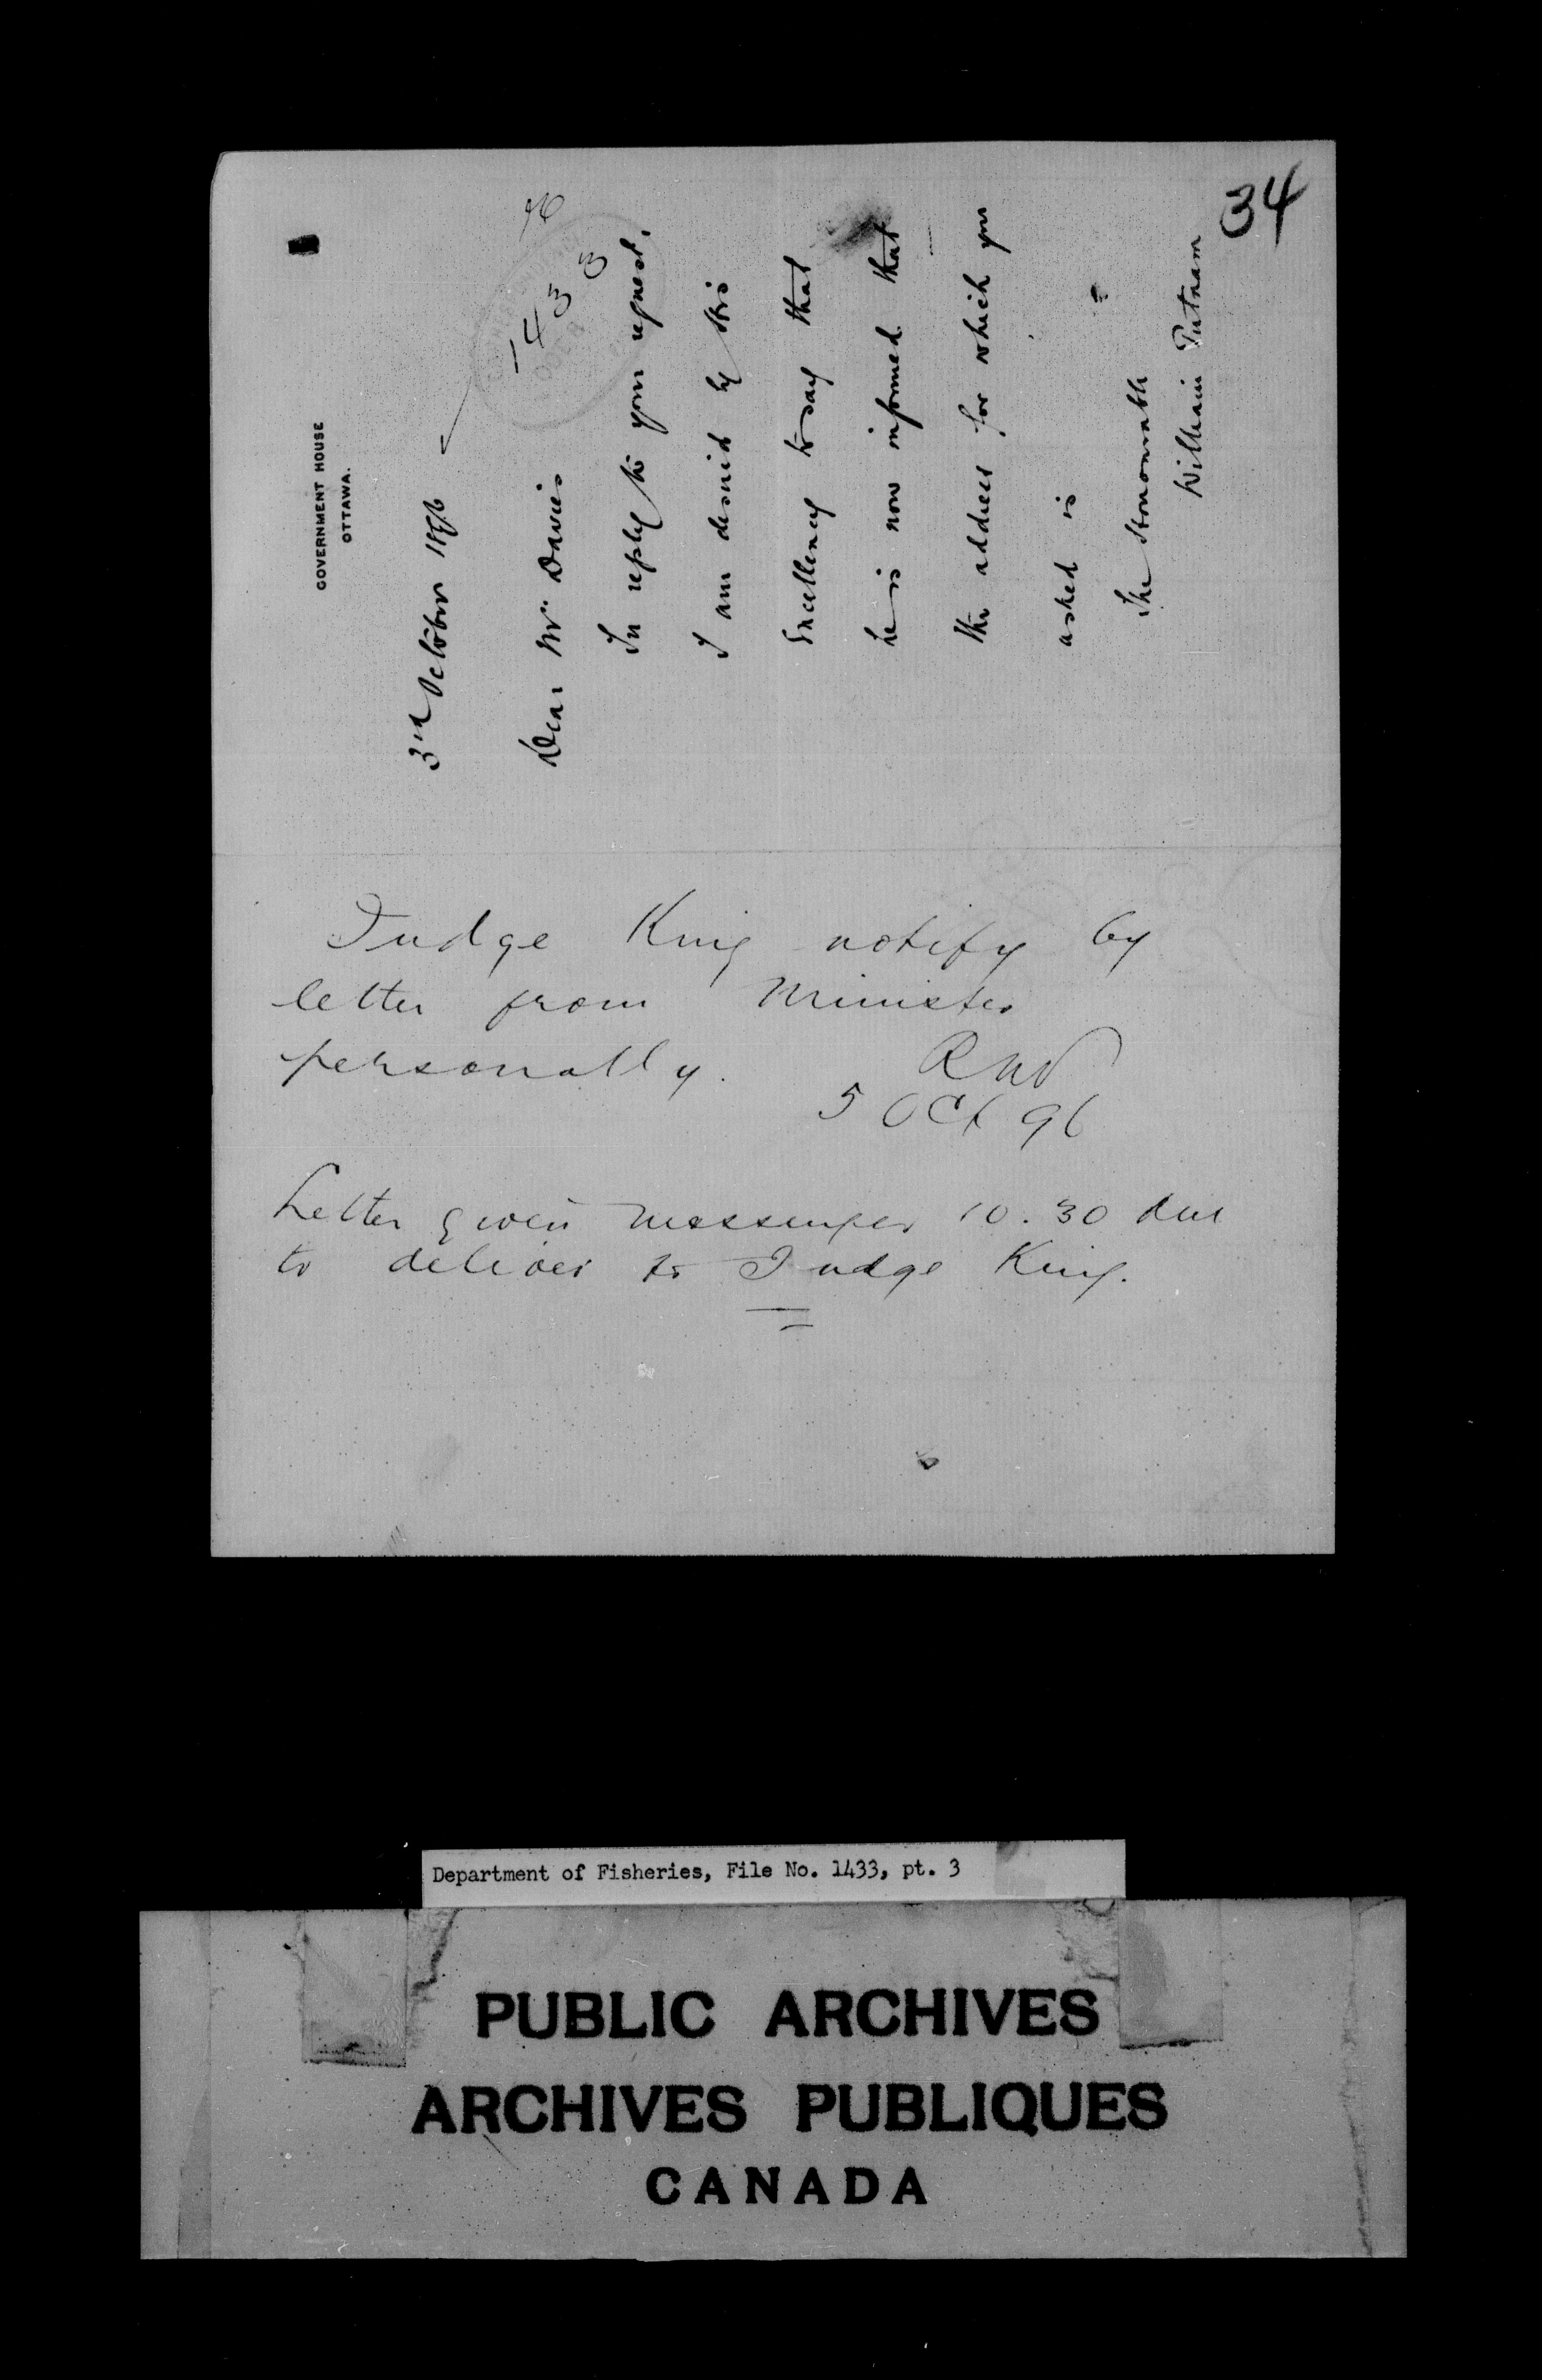 34
GOVERNMENT HOUSE
OTTAWA.
3rd October 1896
1433
Dear Mr Davies
In reply to your request,
I am desired by His
Excellency to say that
he is now informed that
the address for which you
asked is
The Honourable
William Putnam
Judge King notify by
letter from Minister
personally.
5 Oct 96
Letter given messenger 10.30
to deliver to Judge King.
Department of Fisheries, File No. 1433, pt. 3
PUBLIC ARCHIVES
ARCHIVES PUBLIQUES
CANADA